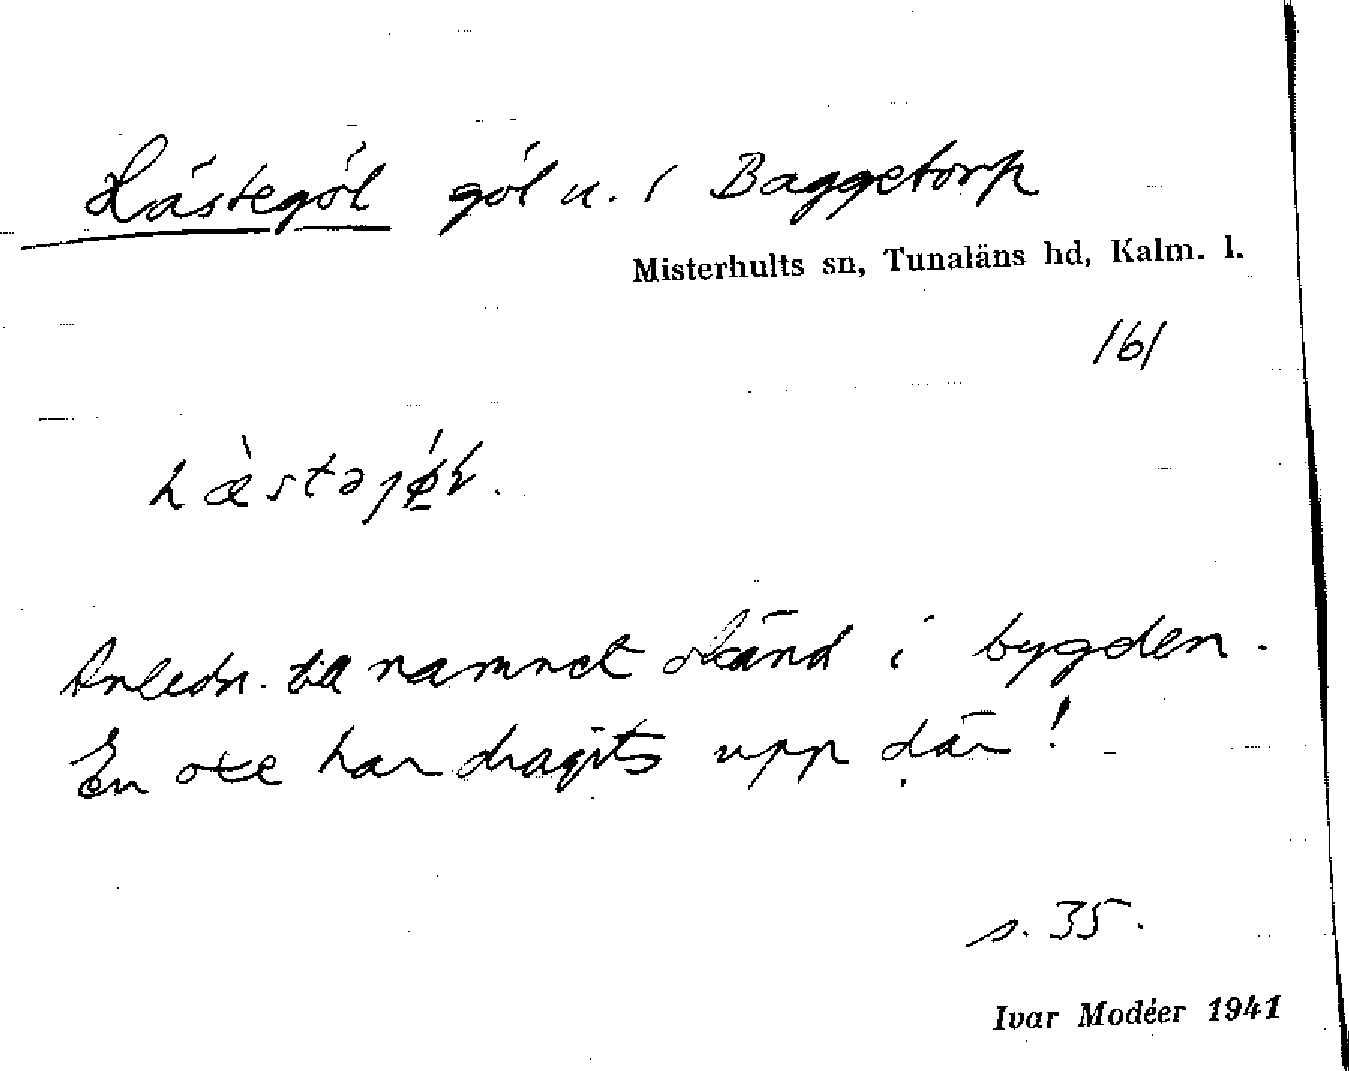 Hästegöl göl u. i Baggetorp
Misterhults sn, Tunaläns hd, Kalm. l.
161
hæ̀stəjǿ̱ɫ.
Anledn. till namnet okänd i bygden.
En oxe har dragits upp där!
s. 35.
Ivar Modéer 1941